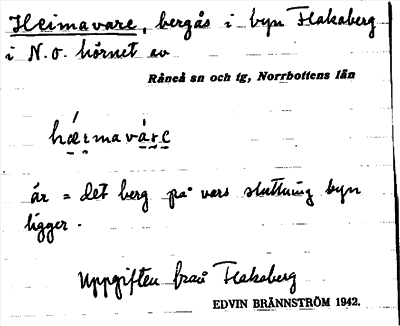 Heimavare, bergås i byn Flakaberg
i N.O. hörnet av
Råneå sn och tg, Norrbottens län
hæi̯mavárε
är = det berg på vars sluttning byn
ligger.
Uppgiften från Flakaberg
EDVIN BRÄNNSTRÖM 1942.